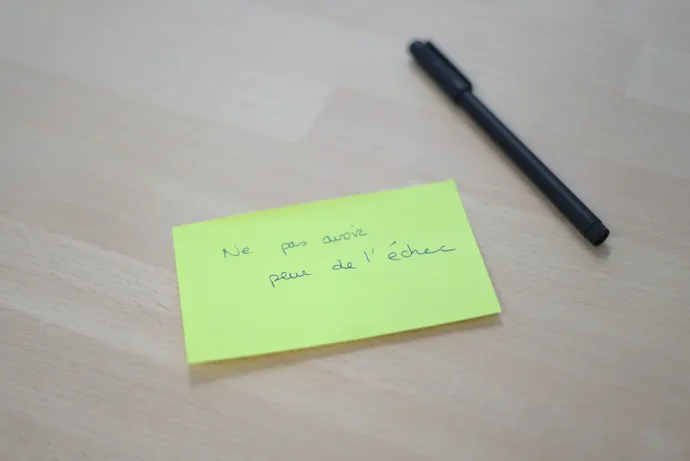 Ne pas avoir
peur de l'échec